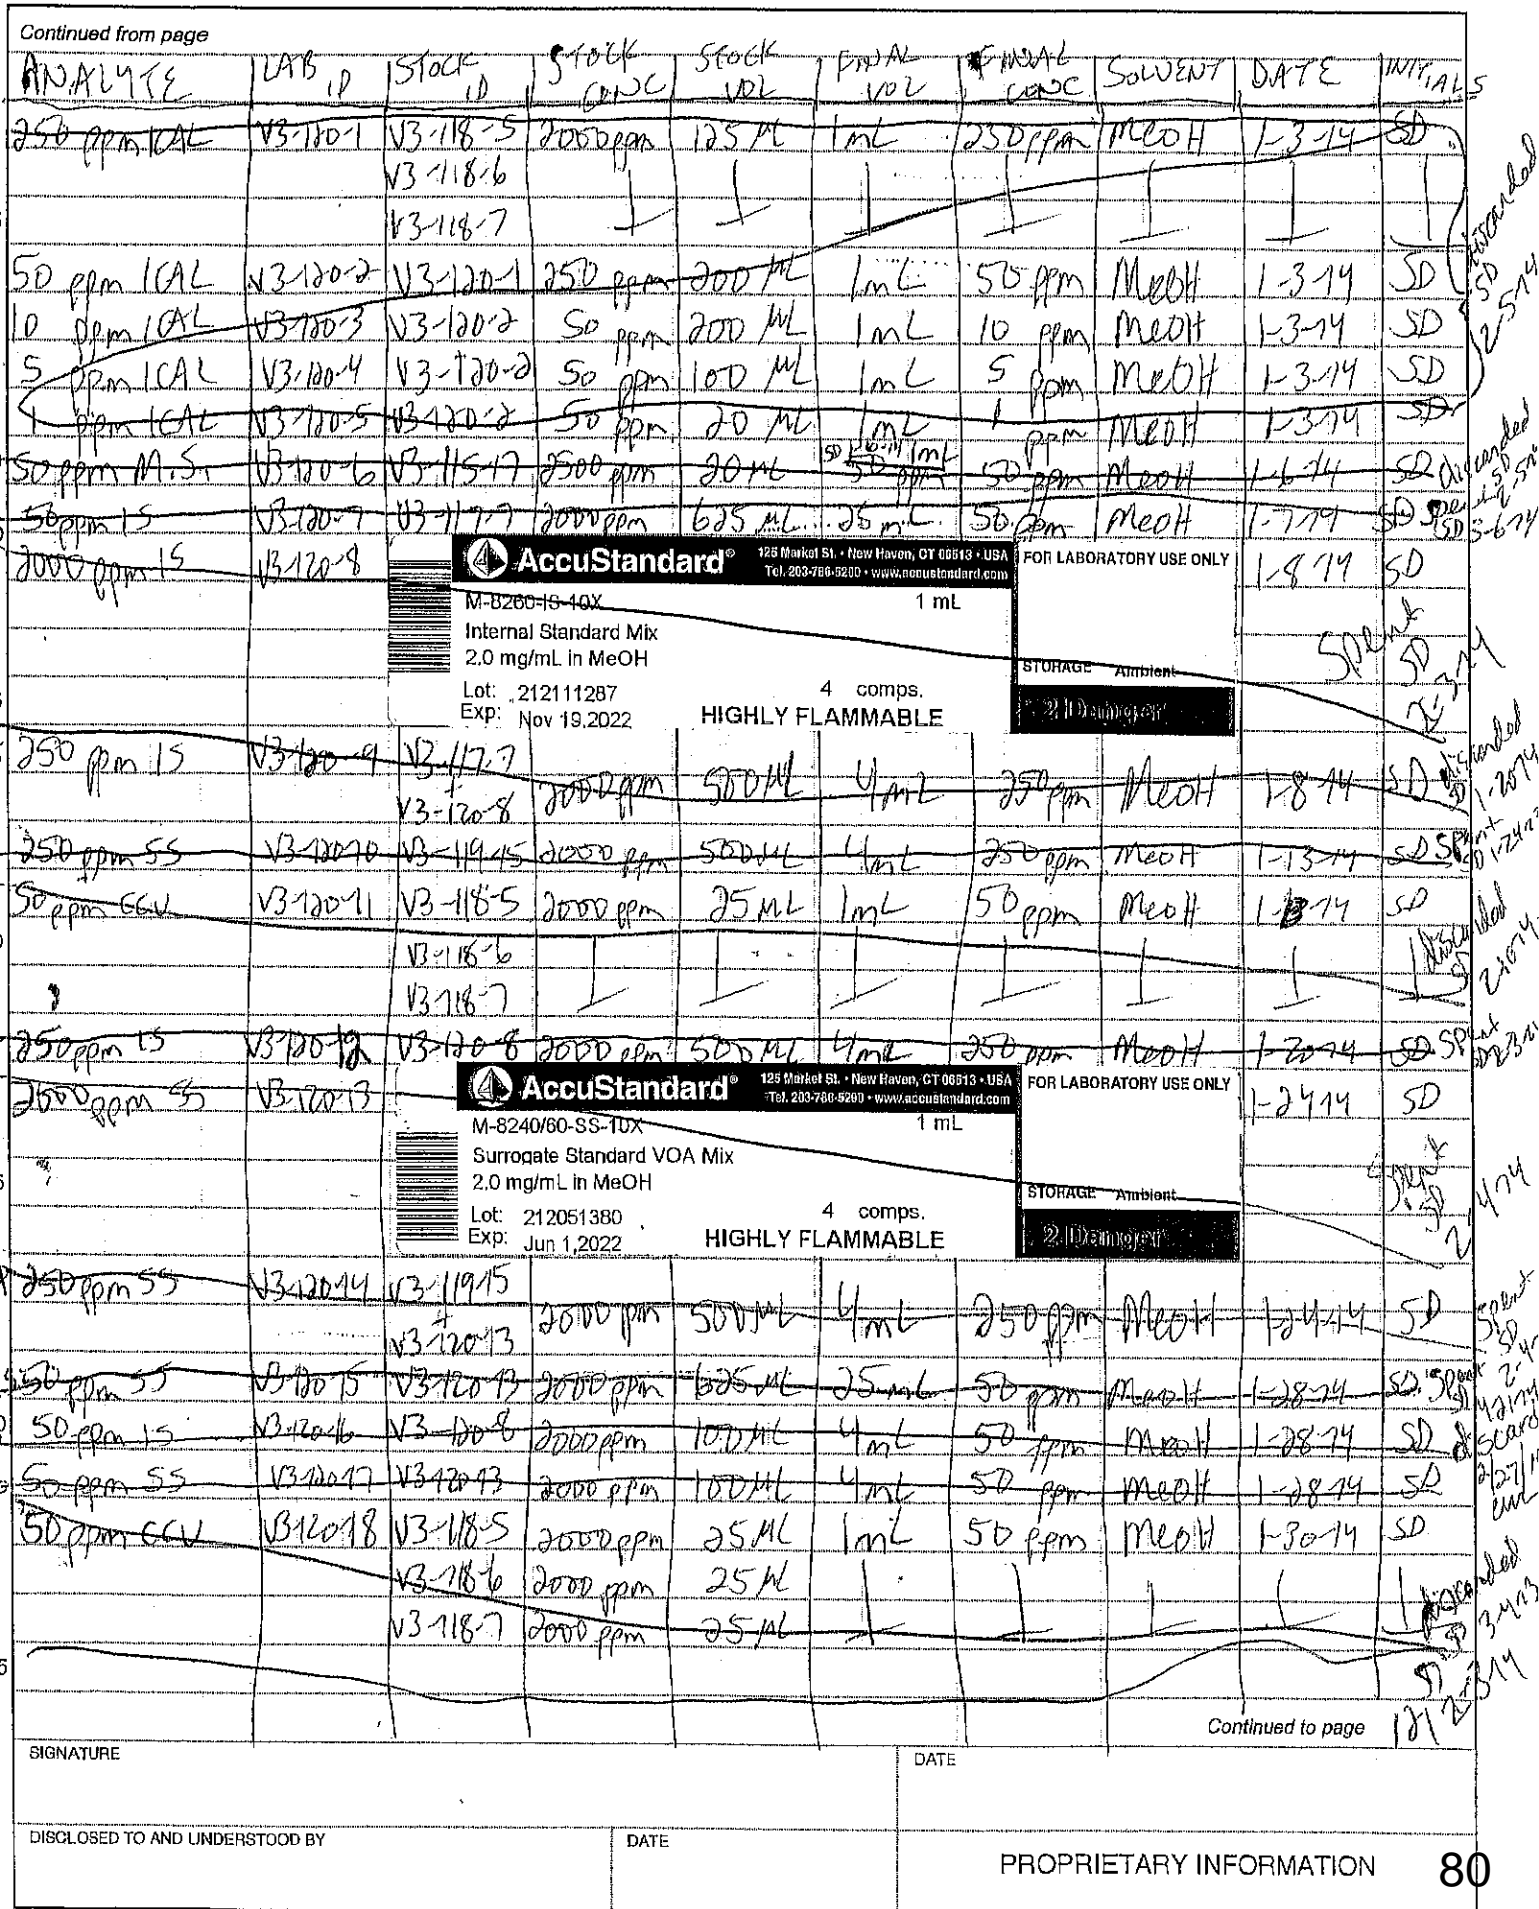 Continued from page
ANALYTE LAB ID STOCK ID STOCK CONC STOCK VOL FINAL VOL FINAL CONC SOLVENT DATE INITIALS
250 ppm ICAL V3-120-1 V3-118-5 2000 ppm 125 µL 1 mL 250 ppm MeOH 1-3-14 SD
V3-118-6
V3-118-7
discarded SD 2-5-14
50 ppm ICAL V3-120-2 V3-120-1 250 ppm 200 µL 1 mL 50 ppm MeOH 1-3-14 SD
10 ppm ICAL V3-120-3 V3-120-2 50 ppm 200 µL 1 mL 10 ppm MeOH 1-3-14 SD
5 ppm ICAL V3-120-4 V3-120-2 50 ppm 100 µL 1 mL 5 ppm MeOH 1-3-14 SD
1 ppm ICAL V3-120-5 V3-120-2 50 ppm 20 µL 1 mL 1 ppm MeOH 1-3-14 SD
50 ppm M.S. V3-120-6 V3-115-17 2500 ppm 20 µL 50 ppm SD 1-6-14 1 mL 50 ppm MeOH 1-6-14 SD discarded SD
50 ppm IS V3-120-7 V3-117-7 2000 ppm 625 µL 25 mL 50 ppm MeOH 1-7-14 SD Spent SD 3-6-14
2000 ppm IS V3-120-8 1-8-14 SD
AccuStandard® 125 Market St. • New Haven, CT 06513 • USA
Tel. 203-786-5290 • www.accustandard.com
FOR LABORATORY USE ONLY
M-8260-IS-10X 1 mL
Internal Standard Mix
2.0 mg/mL in MeOH
STORAGE Ambient
Lot: 212111287 4 comps.
Exp: Nov 19,2022 HIGHLY FLAMMABLE
2 Danger
Spent SD 2-3-14
250 ppm IS V3-120-9 V3-117-7 + V3-120-8 2000 ppm 500 µL 4 mL 250 ppm MeOH 1-8-14 SD discarded SD 1-20-14
250 ppm SS V3-120-10 V3-119-15 2000 ppm 500 µL 4 mL 250 ppm MeOH 1-13-14 SD Spent SD
50 ppm CCV V3-120-11 V3-118-5 2000 ppm 25 µL 1 mL 50 ppm MeOH 1-13-14 SD
V3-118-6
V3-118-7
discarded SD 2-10-14
250 ppm IS V3-120-12 V3-120-8 2000 ppm 500 µL 4 mL 250 ppm MeOH 1-20-14 SD Spent
2000 ppm SS V3-120-13 1-24-14 SD
AccuStandard® 125 Market St. • New Haven, CT 06513 • USA
Tel. 203-786-5290 • www.accustandard.com
FOR LABORATORY USE ONLY
M-8240/60-SS-10X 1 mL
Surrogate Standard VOA Mix
2.0 mg/mL in MeOH
STORAGE Ambient
Lot: 212051380 4 comps.
Exp: Jun 1,2022 HIGHLY FLAMMABLE
2 Danger
Spent SD 2-4-14
250 ppm SS V3-120-14 V3-119-15 + V3-120-13 2000 ppm 500 µL 4 mL 250 ppm MeOH 1-24-14 SD Spent SD
50 ppm SS V3-120-15 V3-120-13 2000 ppm 625 µL 25 mL 50 ppm MeOH 1-28-14 SD Spent
50 ppm IS V3-120-16 V3-120-8 2000 ppm 100 µL 4 mL 50 ppm MeOH 1-28-14 SD
50 ppm SS V3-120-17 V3-120-13 2000 ppm 100 µL 4 mL 50 ppm MeOH 1-28-14 SD
50 ppm CCV V3-120-18 V3-118-5 2000 ppm 25 µL 1 mL 50 ppm MeOH 1-30-14 SD
V3-118-6 2000 ppm 25 µL
V3-118-7 2000 ppm 25 µL
discarded SD
SD 2-3-14
Continued to page 121
SIGNATURE DATE
DISCLOSED TO AND UNDERSTOOD BY DATE
PROPRIETARY INFORMATION 80